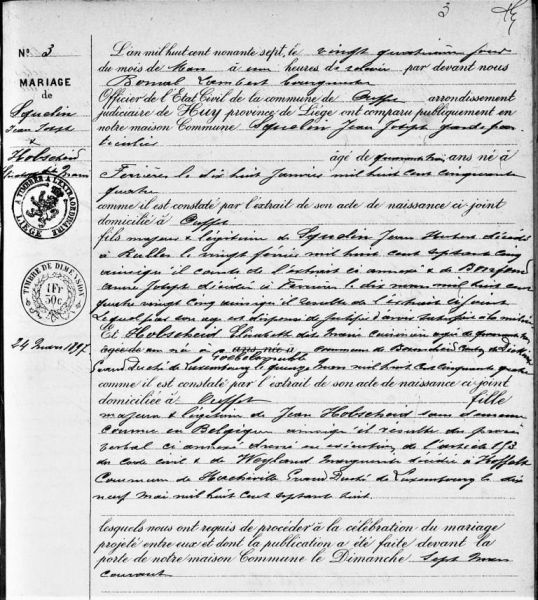 3
N.° 3
MARIAGE
de
Squelin
Jean Joseph
&
Hobscheid
Elisabeth dite Marie
A TIMBRER A L'EXTRAORDINAIRE
LIEGE
TIMBRE DE DIMENSION
1 Fr
50 c.
24 Mars 1897.
L'an mil huit cent nonante sept, le vingt quatrième jour
du mois de Mars à une heures de relevée par devant nous
Bonmal Lambert
Officier de l'Etat Civil de la commune de Ouffet arrondissement
judiciaire de Huy province de Liège ont comparu publiquement en
notre maison Commune Squelin Jean Joseph garde par-
ticulier
âgé de quarante trois ans né à
Ferrières le dix huit Janvier mil huit cent cinquante
quatre
comme il est constaté par l'extrait de son acte de naissance ci joint
domicilié à Ouffet
fils majeur & légitime de Squelin Jean Hubert décédé
à le vingt février mil huit cent septante cinq
ainsi qu'il conste de l'extrait ci annexé & de
Anne Joseph décédée à Ferrières le dix mars mil huit cent
quatre vingt cinq ainsi qu'il résulte de l'extrait ci joint
Lequel par son age est dispensé de justifier d'avoir satisfait à la milice
Et Hobscheid Elisabeth dite Marie cuisinière agée de quarante trois
commune de
Grand Duché de Luxembourg le quinze Mars mil huit cent cinquante quatre
comme il est constaté par l'extrait de son acte de naissance ci joint
domiciliée à Ouffet fille
majeure & légitime de Jean Hobscheid sans demeure
connue en Belgique ainsi qu'il résulte du procès
verbal ci annexé dressé en exécution de l'article 153
du code civil & de Weyland Marguerite décédée à Hoffelt
Commune de Hachiville Grand Duché de Luxembourg le dix
neuf Mai mil huit cent septante huit
lesquels nous ont requis de procéder à la célébration du mariage
projeté entre eux et dont la publication a été faite devant la
porte de notre maison Commune le Dimanche sept Mars
courant